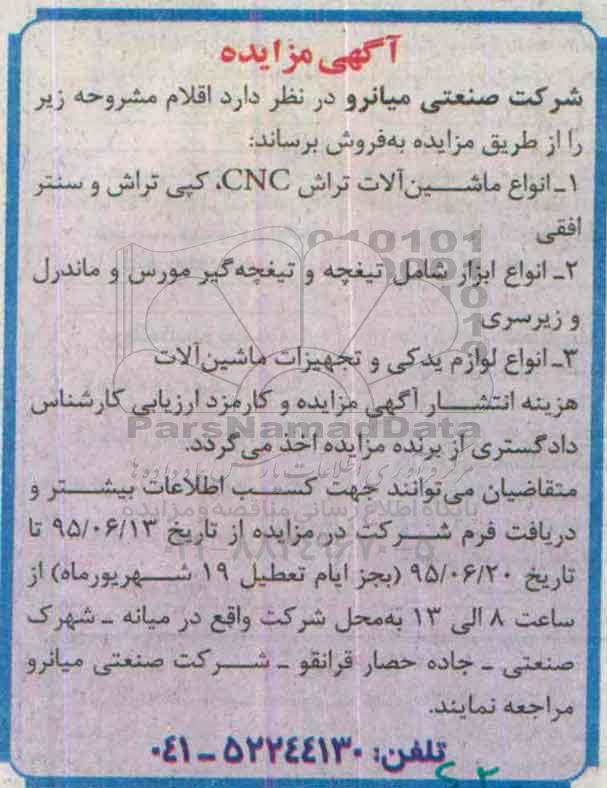 آگهی مزایده
شرکت صنعتی میانرو در نظر دارد اقلام مشروحه زیر
را از طریق مزایده به‌فروش برساند:
۱ـ انواع ماشین‌آلات تراش CNC، کپی تراش و سنتر
افقی
۲ـ انواع ابزار شامل تیغچه و تیغچه‌گیر مورس و ماندرل
و زیرسری
۳ـ انواع لوازم یدکی و تجهیزات ماشین‌آلات
هزینه انتشار آگهی مزایده و کارمزد ارزیابی کارشناس
دادگستری از برنده مزایده اخذ می‌گردد.
متقاضیان می‌توانند جهت کسب اطلاعات بیشتر و
دریافت فرم شرکت در مزایده از تاریخ ۹۵/۰۶/۱۳ تا
تاریخ ۹۵/۰۶/۲۰ (بجز ایام تعطیل ۱۹ شهریورماه) از
ساعت ۸ الی ۱۳ به‌محل شرکت واقع در میانه ـ شهرک
صنعتی ـ جاده حصار قرانقو ـ شرکت صنعتی میانرو
مراجعه نمایند.
تلفن: ۵۲۲۴۴۱۳۰ ـ ۰۴۱
ParsNamadData
پایگاه اطلاع رسانی مناقصه و مزایده